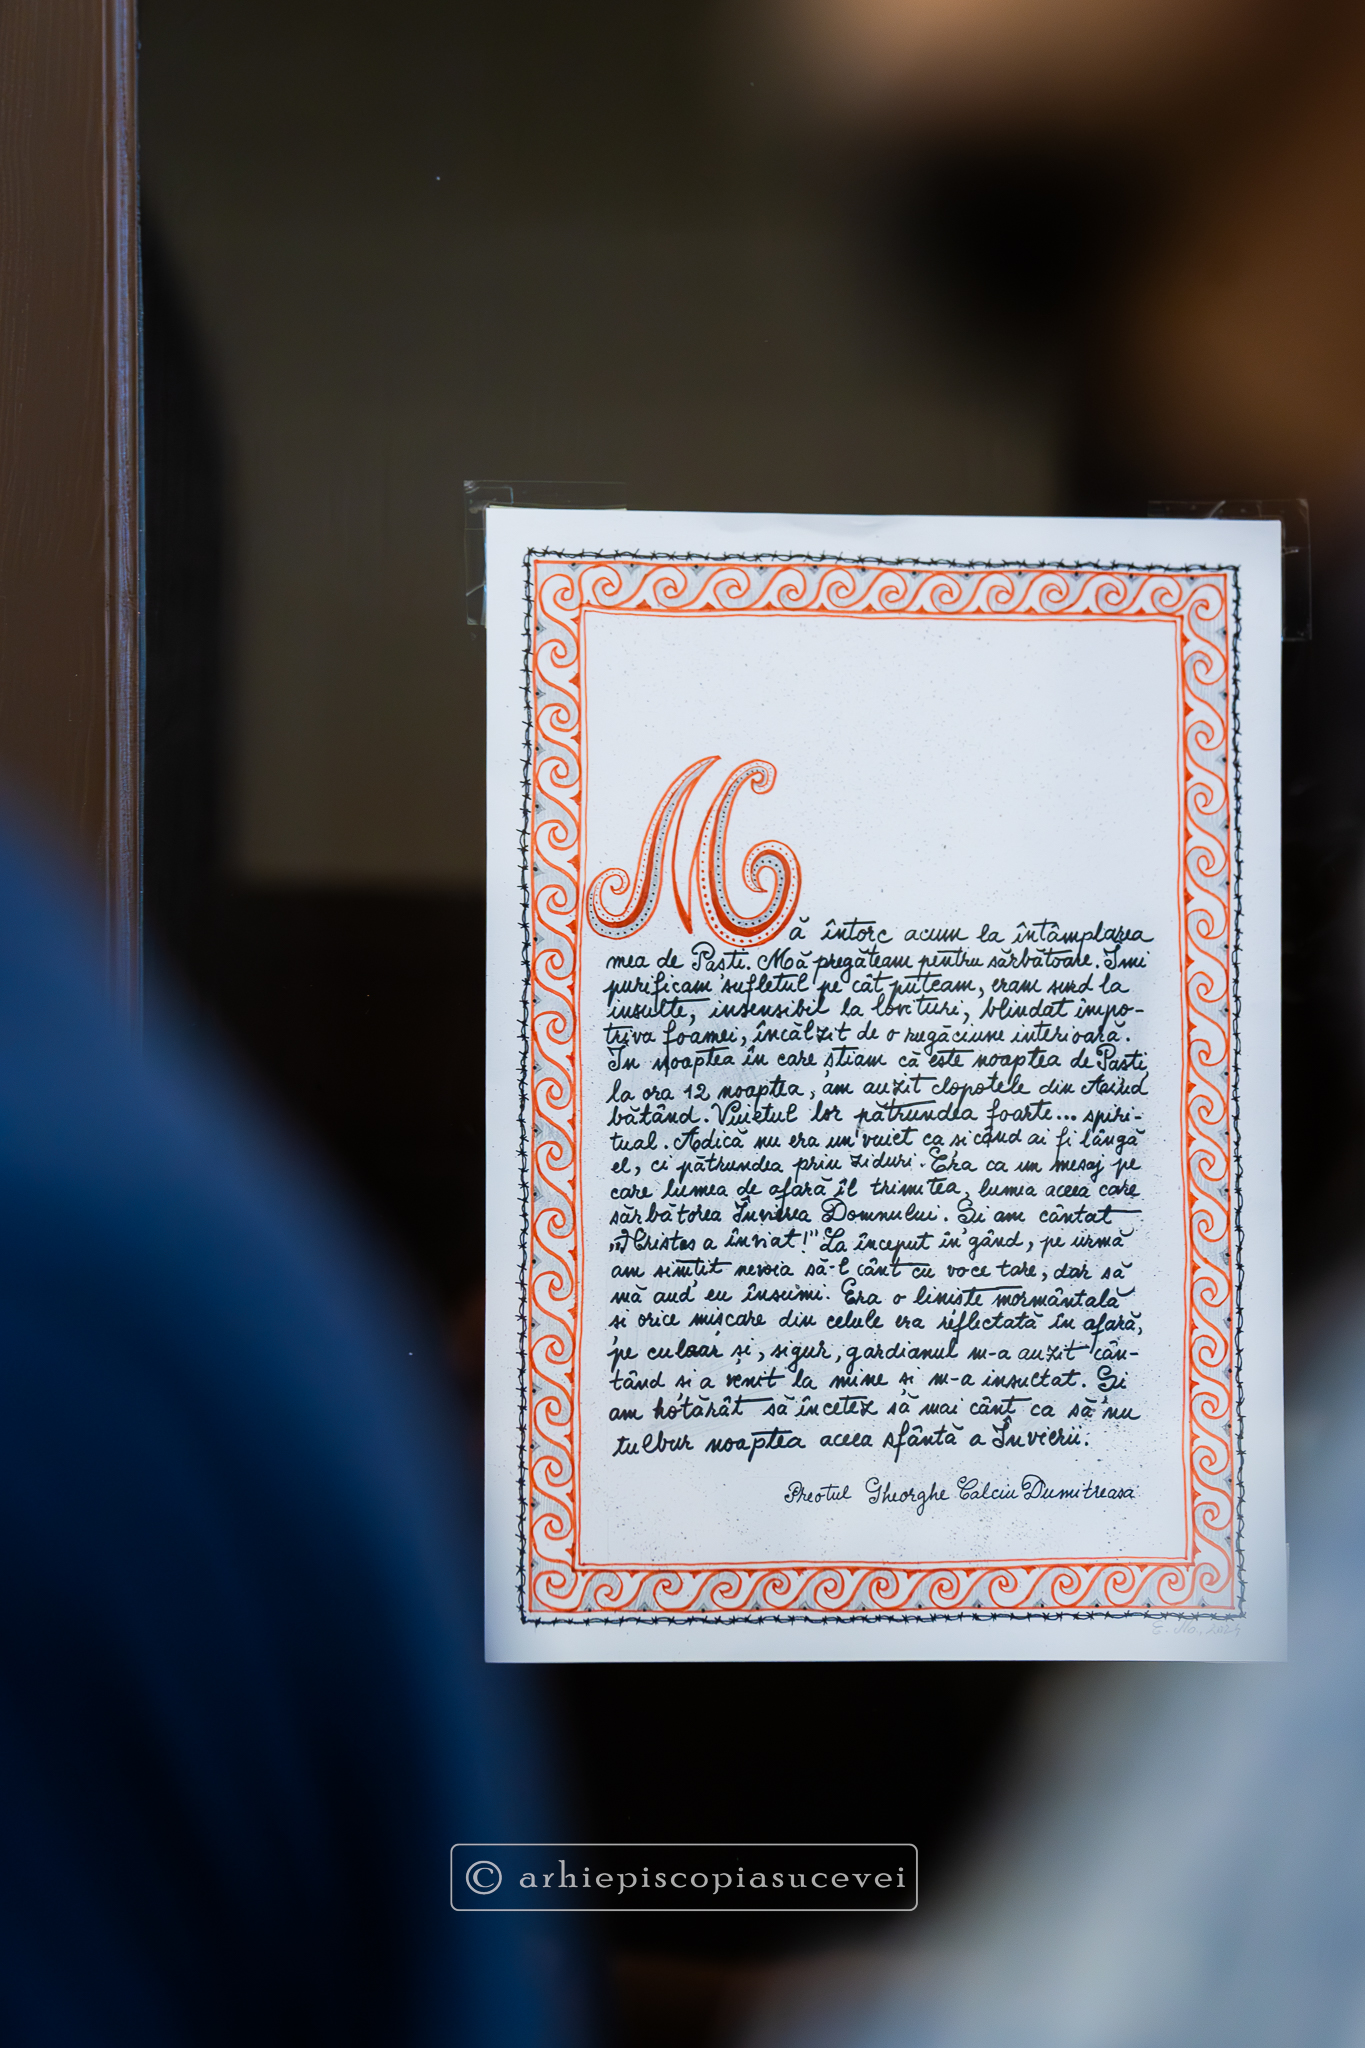 Mă întorc acum la întâmplarea
mea de Paști. Mă pregăteam pentru sărbătoare. Îmi
purificam sufletul pe cât puteam, eram surd la
insulte, insensibil la lovituri, blindat împo-
triva foamei, încălzit de o rugăciune interioară.
În noaptea în care știam că este noaptea de Paști,
la ora 12 noaptea, am auzit clopotele din Aiud
bătând. Vuietul lor pătrundea foarte... spiri-
tual. Adică nu era un vuiet ca și când ai fi lângă
el, ci pătrundea prin ziduri. Era ca un mesaj pe
care lumea de afară îl trimitea, lumea aceea care
sărbătorea Învierea Domnului. Și am cântat
„Hristos a înviat!" La început în gând, pe urmă
am simțit nevoia să-l cânt cu voce tare, dar să
mă aud eu însumi. Era o liniște mormântală
și orice mișcare din celule era reflectată în afară,
pe culoar și, sigur, gardianul m-a auzit cân-
tând și a venit la mine și m-a insultat. Și
am hotărât să încetez să mai cânt ca să nu
tulbur noaptea aceea sfântă a Învierii.
Preotul Gheorghe Calciu Dumitreasa
© arhiepiscopiasucevei